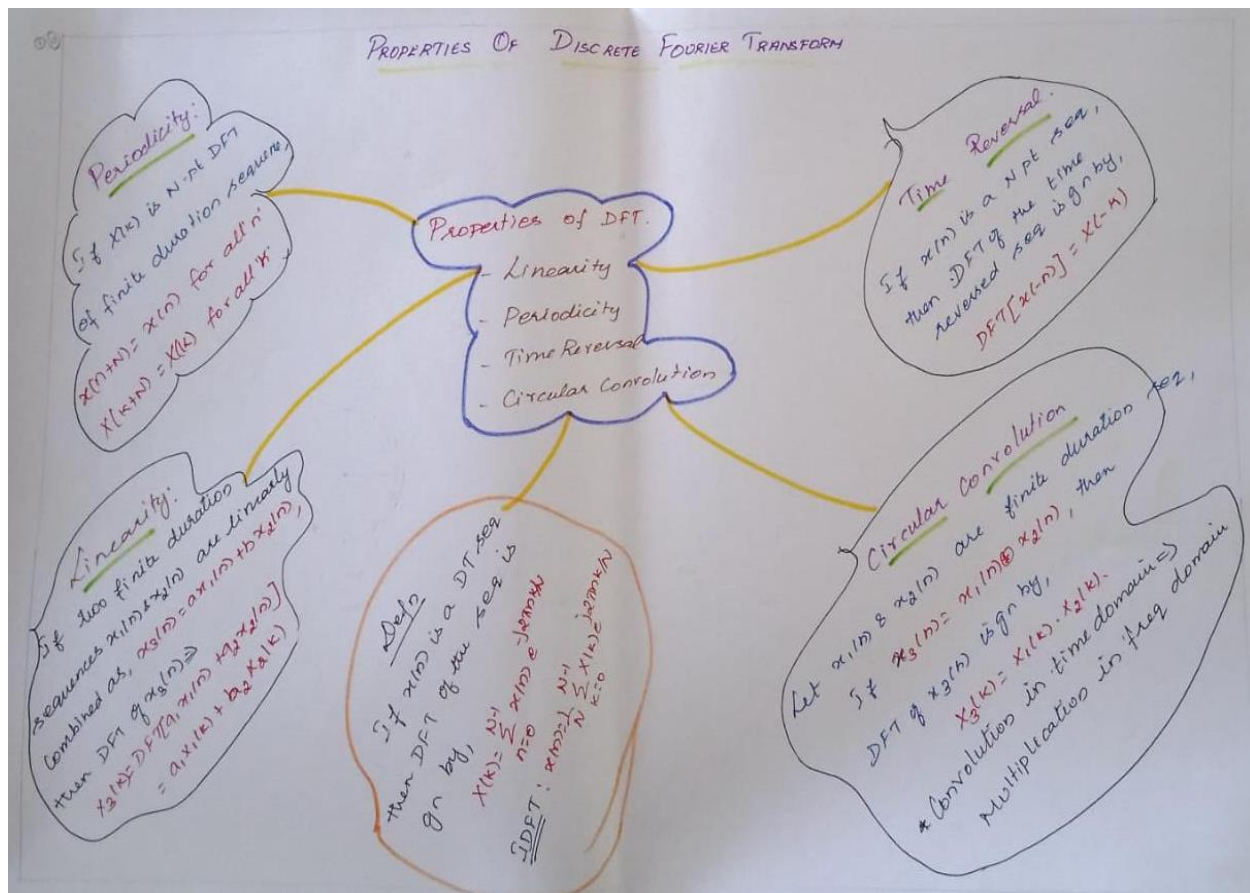 PROPERTIES OF DISCRETE FOURIER TRANSFORM
Periodicity:
If X(k) is N-pt DFT
of finite duration sequene,
x(n+N) = x(n) for all 'n'
X(k+N) = X(k) for all 'k'
Properties of DFT.
- Linearity
- Periodicity
- Time Reversal
- Circular Convolution
Time Reversal.
If x(n) is a N pt seq,
then DFT of the time
reversed seq is gn by,
DFT[x(-n)] = X(-k)
Linearity:
If two finite duration
sequences x₁(n) & x₂(n) are linearly
combined as, x₃(n) = ax₁(n) + bx₂(n),
then DFT of x₃(n) ⇒
X₃(k) = DFT[a₁x₁(n) + a₂x₂(n)]
= a₁X₁(k) + a₂X₂(k)
Defn
If x(n) is a DT seq
then DFT of the seq is
gn by,
X(k) = N-1 Σ n=0 x(n) e^-j2πnk/N
IDFT: x(n) = 1/N N-1 Σ k=0 X(k) e^j2πnk/N
Circular Convolution
Let x₁(n) & x₂(n) are finite duration seq,
If x₃(n) = x₁(n) ⊛ x₂(n), then
DFT of x₃(n) is gn by,
X₃(k) = X₁(k) . X₂(k).
* Convolution in time domain ⇒
Multiplication in freq domain